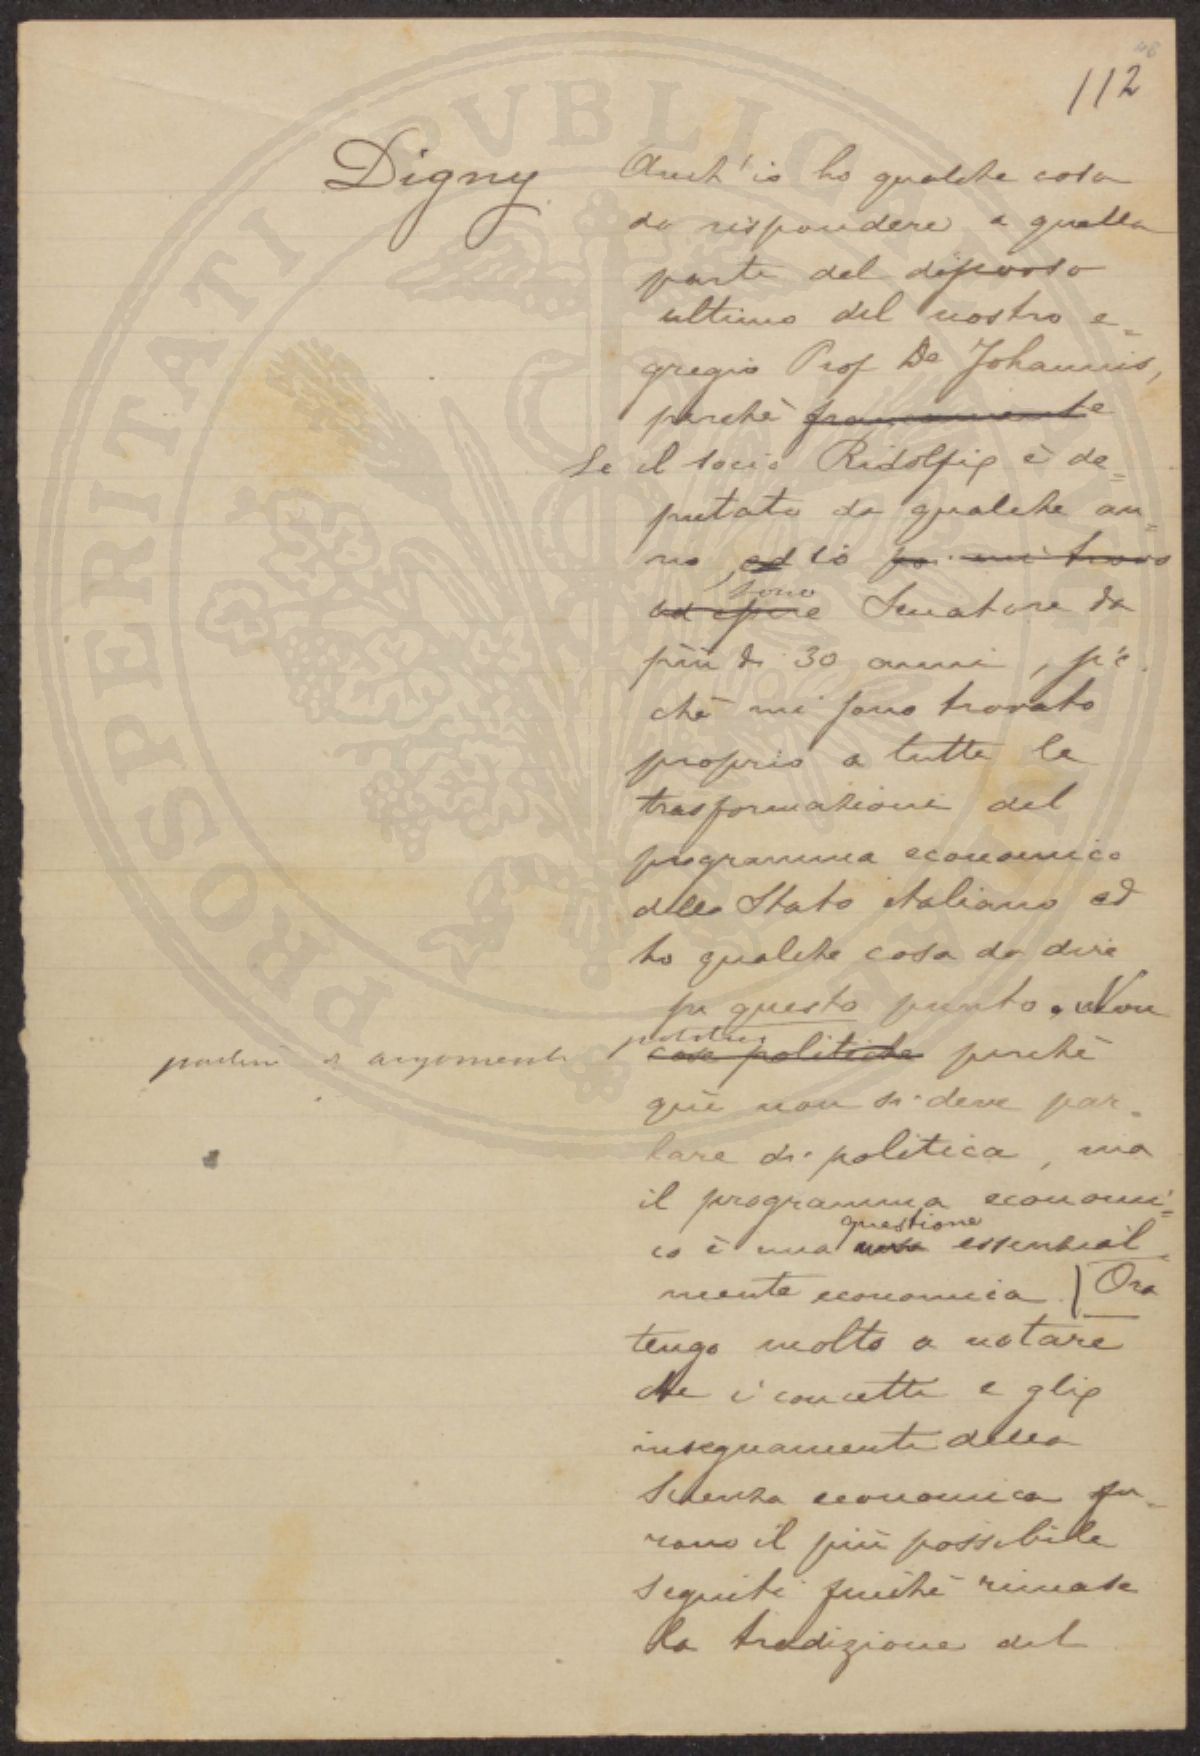 112
Digny
Anch'io ho qualche cosa
da rispondere a quella
parte del discorso
ultimo del nostro e=
gregio Prof De Johannis,
perchè francamente
Se il socio Ridolfi è de=
putato da qualche an=
no, ed io poi mi trovo
sono
ad essere Senatore da
più di 30 anni, sic
chè mi sono trovato
proprio a tutte le
trasformazioni del
programma economico
dello Stato italiano ed
ho qualche cosa da dire
su questo punto. Non
politici
parlerò di argomenti
cose politiche perchè
qui non si deve par=
lare di politica, ma
il programma economi=
questione
co è una cosa essenzial
mente economica. | Ora
tengo molto a notare
che i concetti e gli
insegnamenti della
Scienza economica fu=
rono il più possibile
seguiti finchè rimase
la tradizione del
PROSPERITATI PVBLICAE